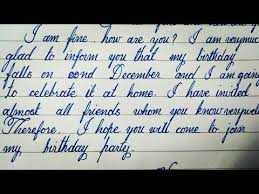 I am fine. how are you? I am verymuch
glad to inform you that my birthday
falls on 22nd December and I am going
to celebrate it at home. I have invited
almost all friends whom you know verywell.
Therefore, I hope you will come to join
my birthday party.